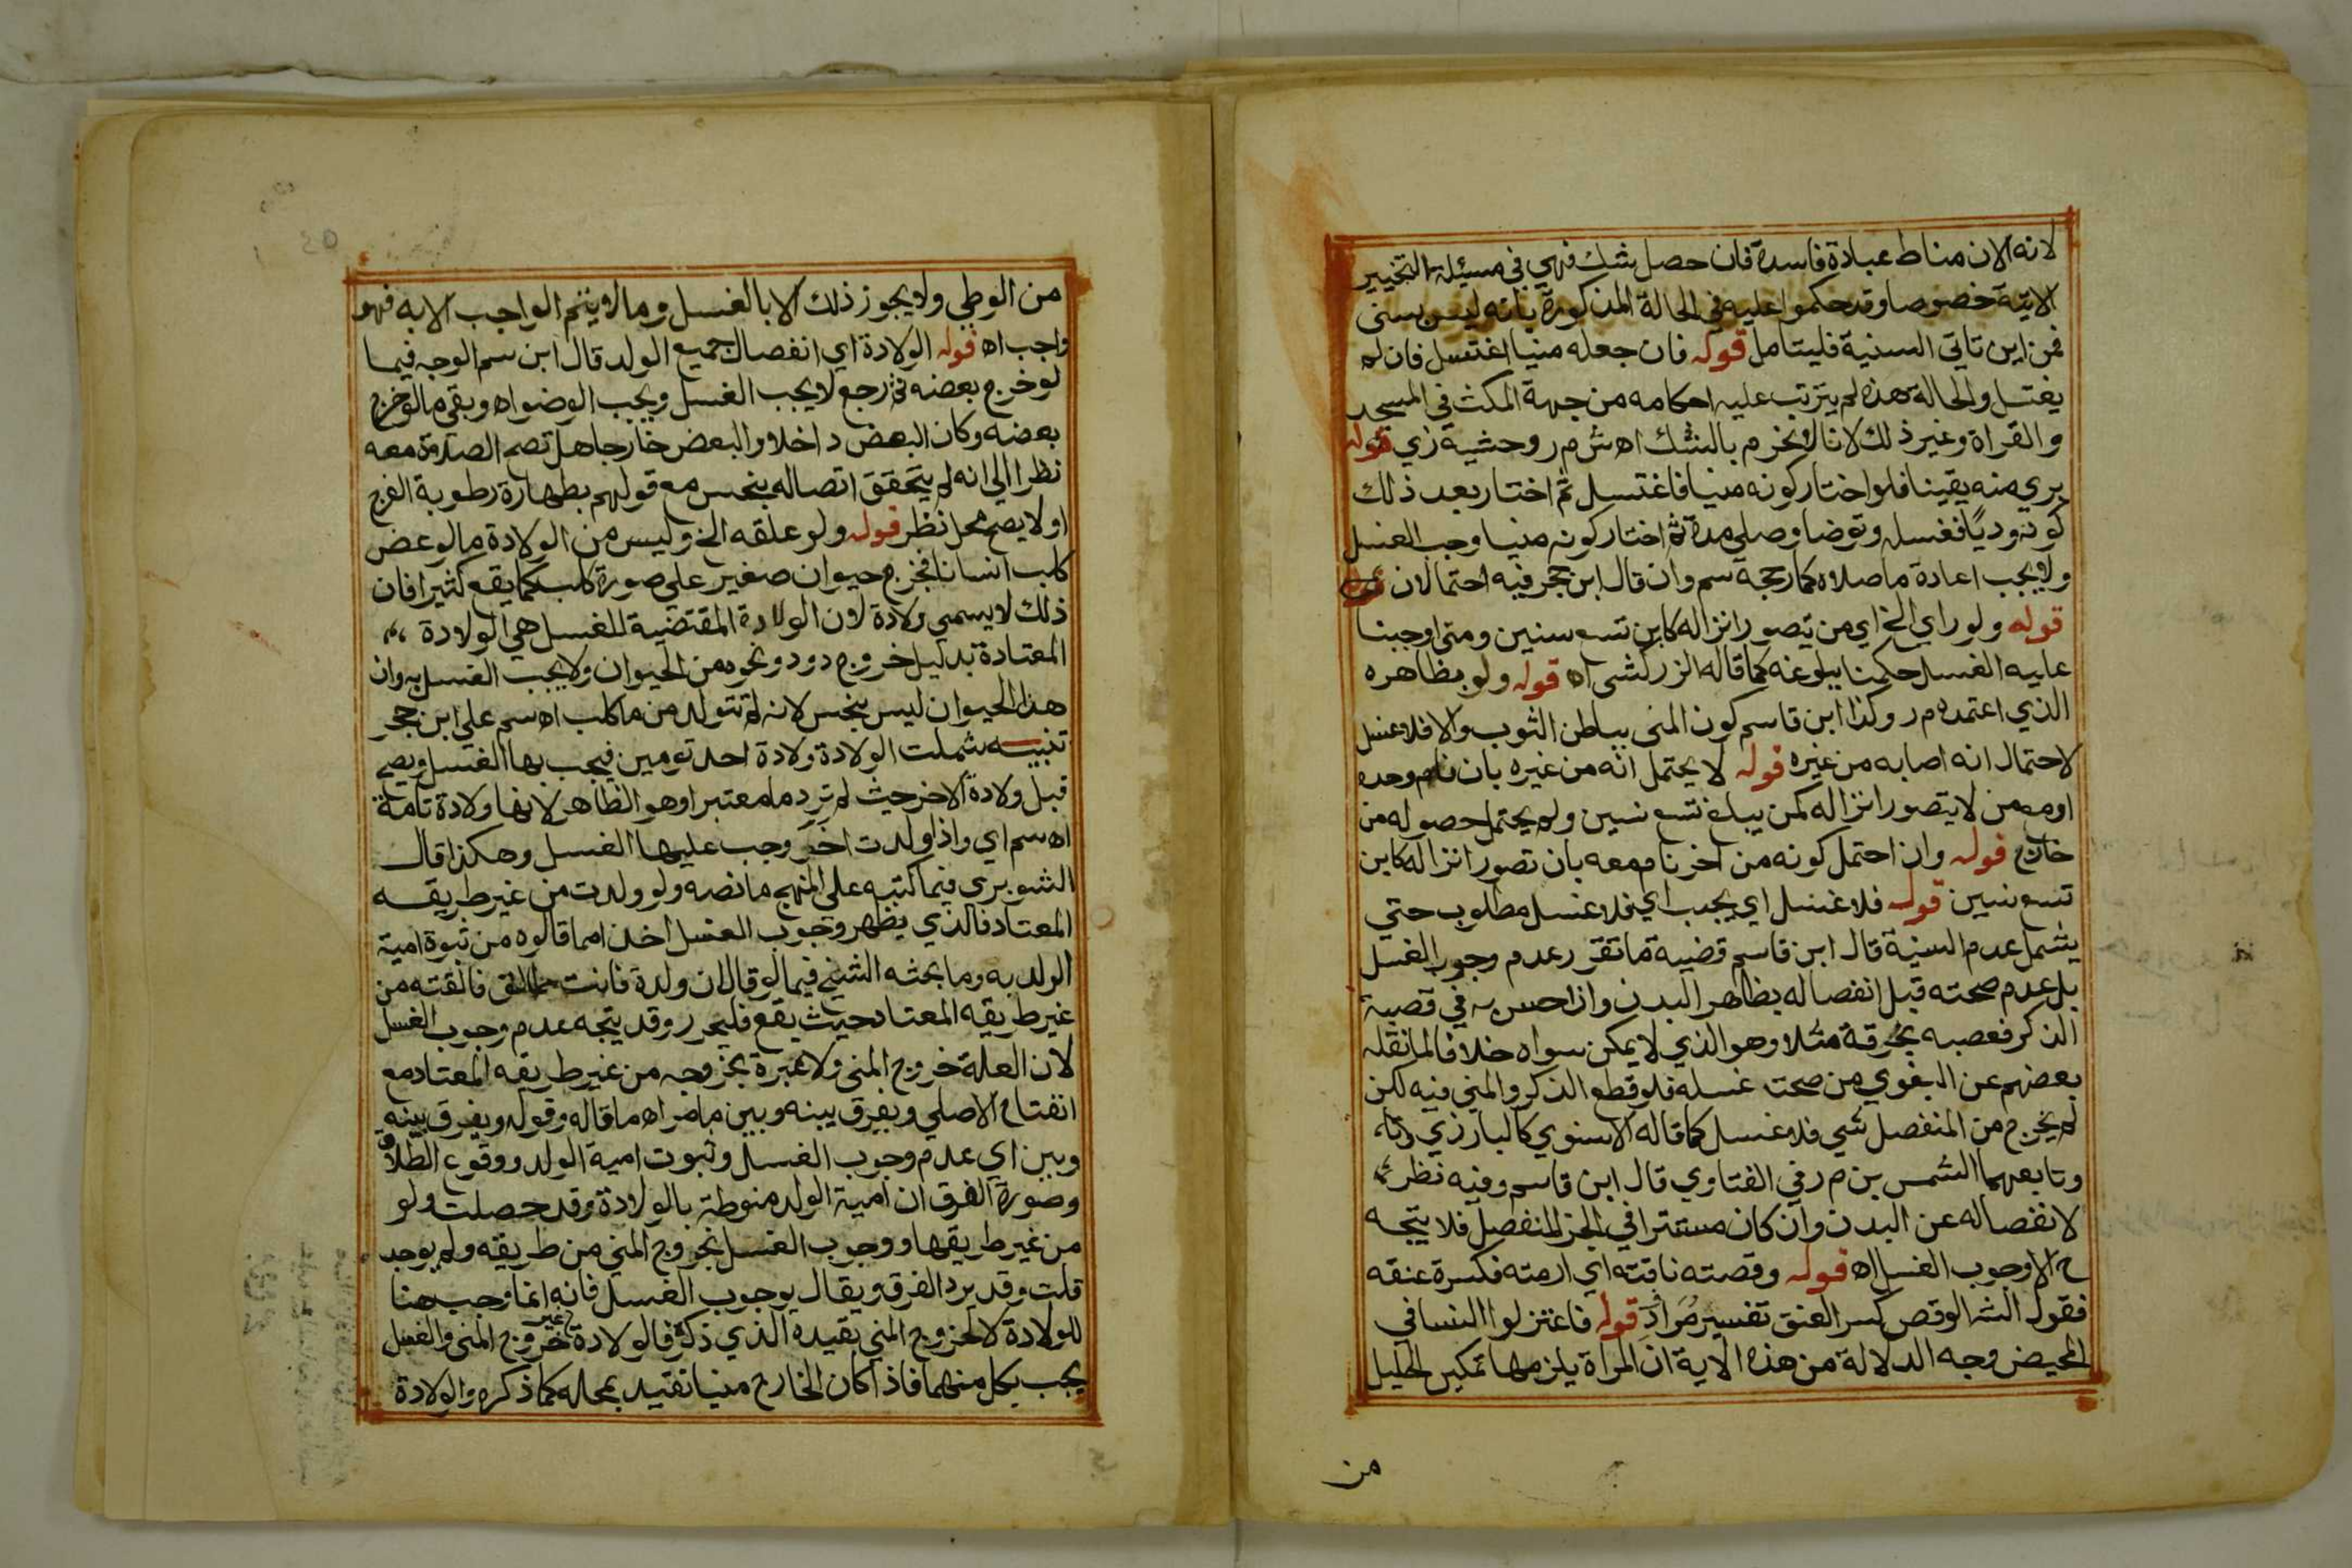 لانه الان مناط عبادة فاسدة فان حصل شك فهي في مسئلة التخيير
الاتية خصوصا وقد حكموا عليه في الحالة المذكورة بانه ليس بمنى
فمن اين تاتي السنية فليتامل قوله فان جعله منيا اغتسل فان لم
يغتسل والحالة هذه لم يترتب عليه احكامه من جهة المكث في المسجد
والقراة وغير ذلك لانا لا نحرم بالشك اه ش م ر وحشية زي قوله
بري منه يقينا فلو اختار كونه منيا فاغتسل ثم اختار بعد ذلك
كونه وديًا فغسله وتوضا وصلي مدة ثم اختار كونه منيا وجب الغسل
ولا يجب اعادة ما صلاه كما رجحه سم وان قال ابن حجر فيه احتمالان
قوله ولو راي الخ اي من تصور انزاله كابن تسع سنين ومتى اوجبنا
عليه الغسل حكمنا ببلوغه كما قاله الزركشى اه قوله ولو بظاهره
الذي اعتمده م ر وكذا ابن قاسم كون المنى بباطن الثوب والا فلا غسل
لاحتمال انه اصابه من غيره قوله لا يحتمل انه من غيره بان نام وحده
او مع من لا يتصور انزاله كمن يبلغ تسع سنين ولم يحتمل حصوله من
خارج قوله وان احتمل كونه من اخر نام معه بان تصور انزاله كابن
تسع سنين قوله فلا غسل اي يجب اي فلا غسل مطلوب حتي
يشمل عدم السنية قال ابن قاسم قضية ما تقرر عدم وجوب الغسل
بل عدم صحته قبل انفصاله بظاهر البدن وان احس به في قصبة
الذكر فعصبه بخرقة مثلا وهو الذي لا يمكن سواه خلافا لما نقله
بعضهم عن البغوي من صحت غسله فلو قطع الذكر والمني فيه لكن
لم يخرج من المنفصل شي فلا غسل كما قاله الاسنوي كالبارزي
وتابعهما الشمس بن م ر في الفتاوي قال ابن قاسم وفيه نظر
لانفصاله عن البدن وان كان مستترا في الجز المنفصل فلا يتجه
ح الا وجوب الغسل اه قوله وقصته ناقته اي ارمته فكسرة عنقه
فقول الش الوقص كسر العنق تفسير مُرادِ قوله فاعتزلوا النسا في
المحيض وجه الدلالة من هذه الاية ان المراة يلزمها تمكين الحليل
من
من الوطي ولا يجوز ذلك الا بالغسل وما لا يتم الواجب الا به فهو
واجب اه قوله الولادة اي انفصال جميع الولد قال ابن سم الوجه فيما
لو خرج بعضه ثم رجع لا يجب الغسل ويجب الوضواه وبقي ما لو خرج
بعضه وكان البعض داخلا والبعض خارجا هل تصح الصلاة معه
نظرا الي انه لم يتحقق اتصاله بنجس مع قولهم بطهارة رطوبة الفرج
او لا يصح محل نظر قوله ولو علقه الخ وليس من الولادة ما لو عض
كلب انسانا فخرج حيوان صغير علي صورة كلب كما يقع كثيرا فان
ذلك لا يسمي ولادة لان الولادة المقتضية للغسل هي الولادة
المعتادة بدليل خروج دود ونحوه من الحيوان ولا يجب الغسل به وان
هذا الحيوان ليس بنجس لانه لم تتولد من ما كلب اه سم علي ابن حجر
تنبيه شملت الولادة ولادة احد تومين فيجب بها الغسل ويصح
قبل ولادة الاخر حيث لم ترد ما معتبرا وهو الظاهر لانها ولادة تامة
اه سم اي واذا ولدت اخر وجب عليها الغسل وهكذا قال
الشوبري فيما كتبه على المنهج ما نصه ولو ولدت من غير طريقه
المعتاد فالذي يظهر وجوب الغسل اخذا مما قالوه من ثبوة امية
الولد به وما بحثه الشيخ فيما لو قال ان ولدة فانت طالق فالقته من
غير طريقه المعتاد حيث يقع فليحرر وقد يتجه عدم وجوب الغسل
لان العلة خروج المنى ولا عبرة بخروجه من غير طريقه المعتاد مع
انفتاح الاصلي ويفرق بينه وبين ما مر اه ما قاله وقوله ويفرق بينه
وبين اي عدم وجوب الغسل وثبوت امية الولد ووقوع الطلاق
وصورة الفرق ان امية الولد منوطة بالولادة وقد حصلت ولو
من غير طريقها ووجوب الغسل بخروج المني من طريقه ولم يوجد
قلت وقد يرد الفرق ويقال بوجوب الغسل فانه انما وجب هنا
للولادة لا لخروج المني بقيده الذي ذكره فالولادة غير خروج المنى والغسل
يجب بكل منهما فاذا كان الخارج منيا تقيد بمحله كما ذكره والولادة